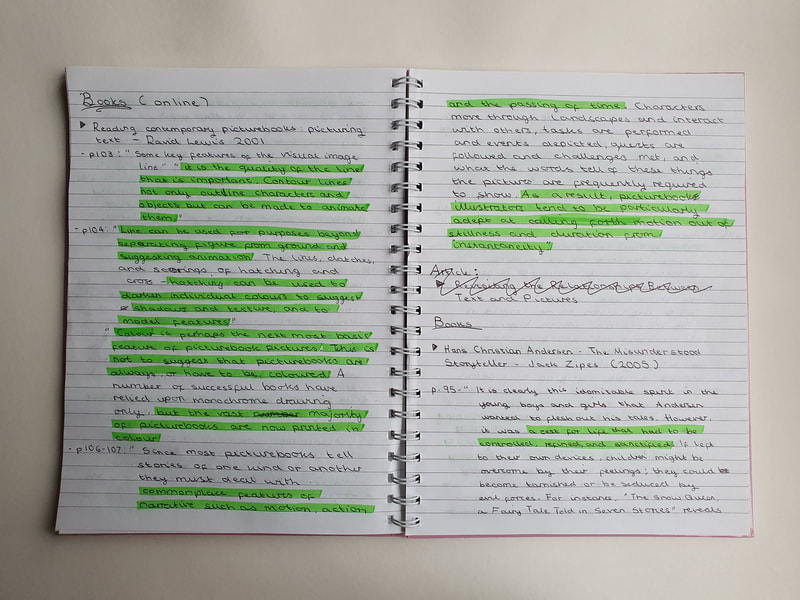 Books (online)
▶ Reading contemporary picturebooks: picturing
text - David Lewis 2001
- p103: " Some key features of the visual image
line" "it is the quality of the line
that is important. Contour lines
not only outline characters and
objects but can be made to animate
them."
- p104: "Line can be used for purposes beyond
separating figure from ground and
suggesting animation. The lines,
and of hatching and
cross - hatching can be used to
darken individual colours to suggest
shadows and texture, and to
model features"
"Colour is perhaps the next most basic
feature of picturebook pictures. This is
not to suggest that picturebooks are
always, or have to be, coloured. A
number of successful books have
relied upon monochrome drawing
only, but the vast majority
of picturebooks are now printed in
colour
- p106-107: " Since most picturebooks tell
stories of one kind or another
they must deal with
commonplace features of
narrative such as motion action
and the passing of time. Characters
move through landscapes and interact
with others, tasks are performed
and events depicted, quests are
followed and challenges met, and
what the words tell of these things
the picture are frequently required
to show. As a result, picturebook
illustrator tend to be particularly
adept at calling forth motion out of
stillness and duration from
instantaneity"
Article:
▶ Revisiting the Relationships Between
Text and Pictures
Books
▶ Hans Christian Andersen - The Misunderstood
Storyteller - Jack Zipes (2005)
p.95-" It is clearly this indomitable spirit in the
young boys and girls that Andersen
wanted to flesh out his tales. However,
it was a zest for life that had to be
controlled, refined, and sanctified. If left
to their own devices, children might be
overcome by their feelings; they could be
become tarnished or be seduced by
evil forces. For instance, "The Snow Queen,
a Fairy Tale Told in Seven Stories" reveals